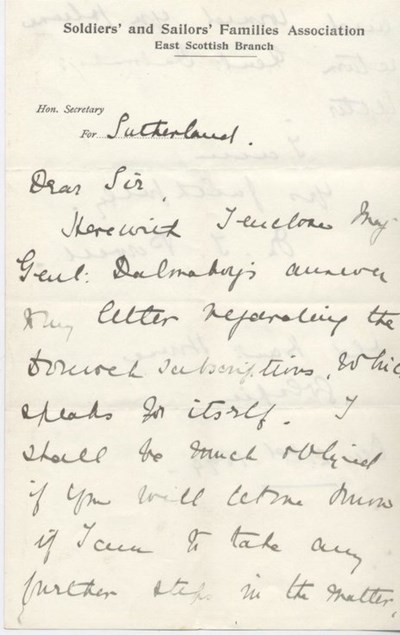 Soldiers' and Sailors' Families Association
East Scottish Branch
Hon. Secretary
For Sutherland.
Dear Sir,
Herewith I enclose Maj
Genl: Dalmahoy's answer
to my letter regarding the
Dornoch subscriptions, which
speaks for itself. I
shall be much obliged
if you will let me know
if I am to take any
further steps in the matter,